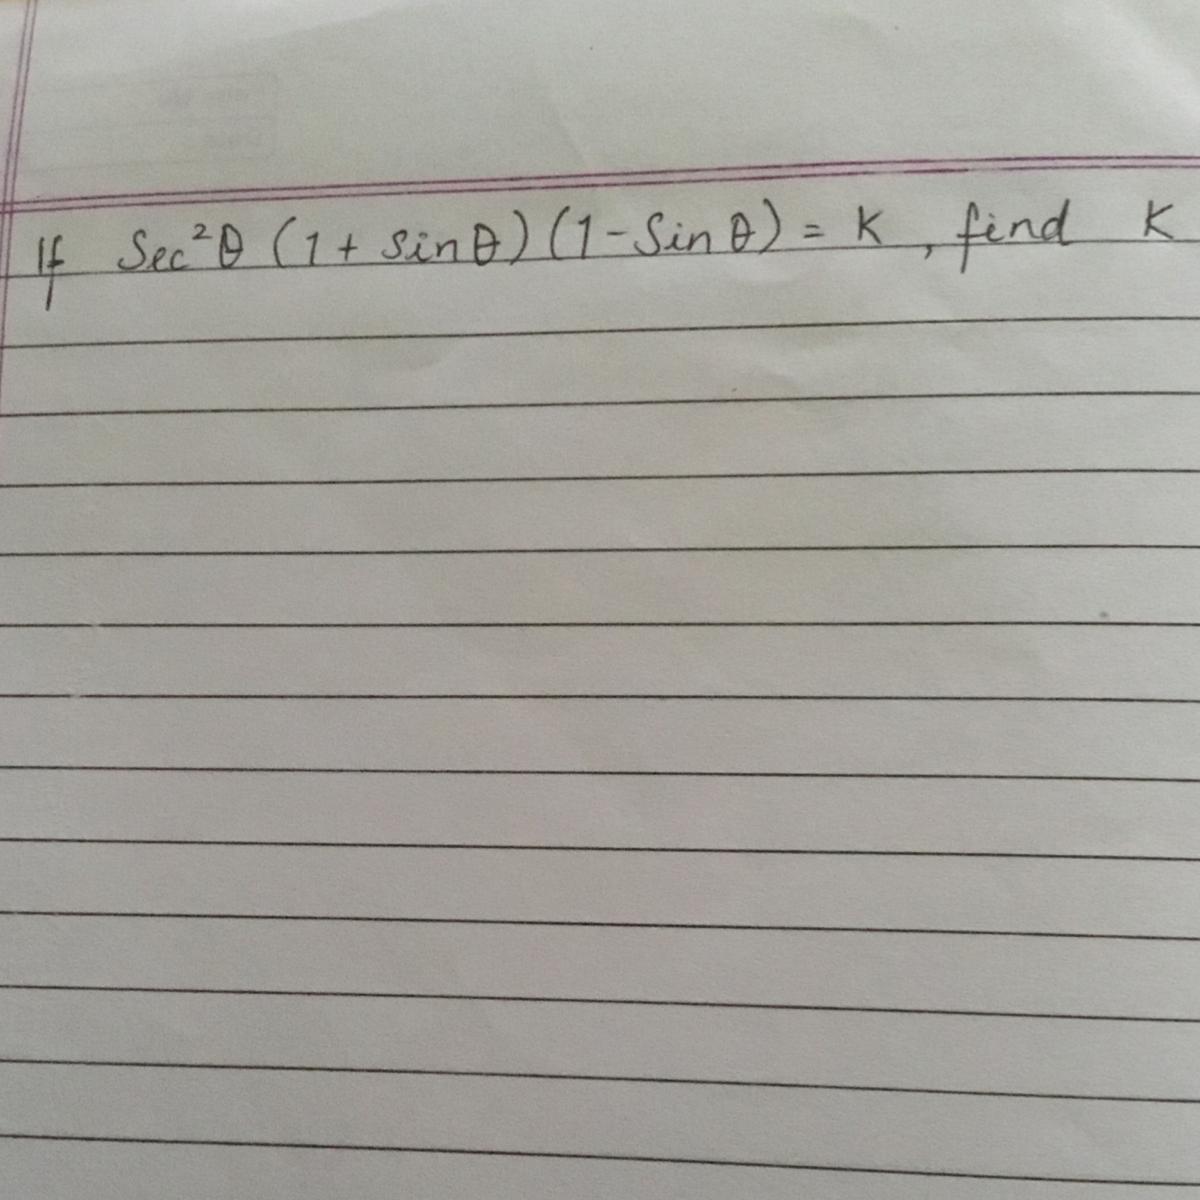 If Sec²θ (1 + Sinθ) (1 - Sinθ) = K , find K